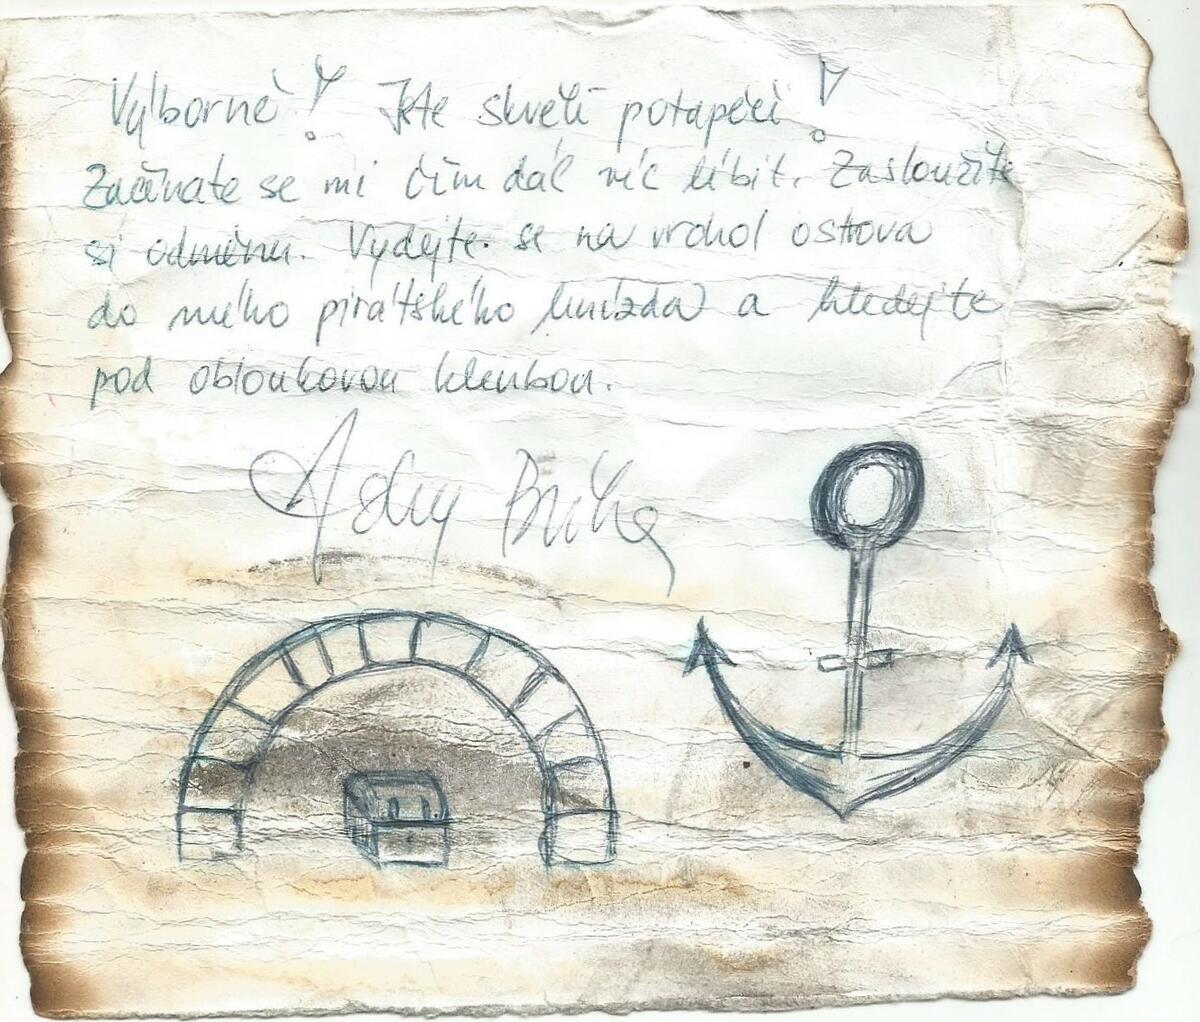 Výborně! Jste skvělí potápěči!
Začínáte se mi čím dál víc líbit. Zasloužíte
si odměnu. Vydejte se na vrchol ostrova
do mého pirátského hnízda a hledejte
pod obloukovou klenbou.